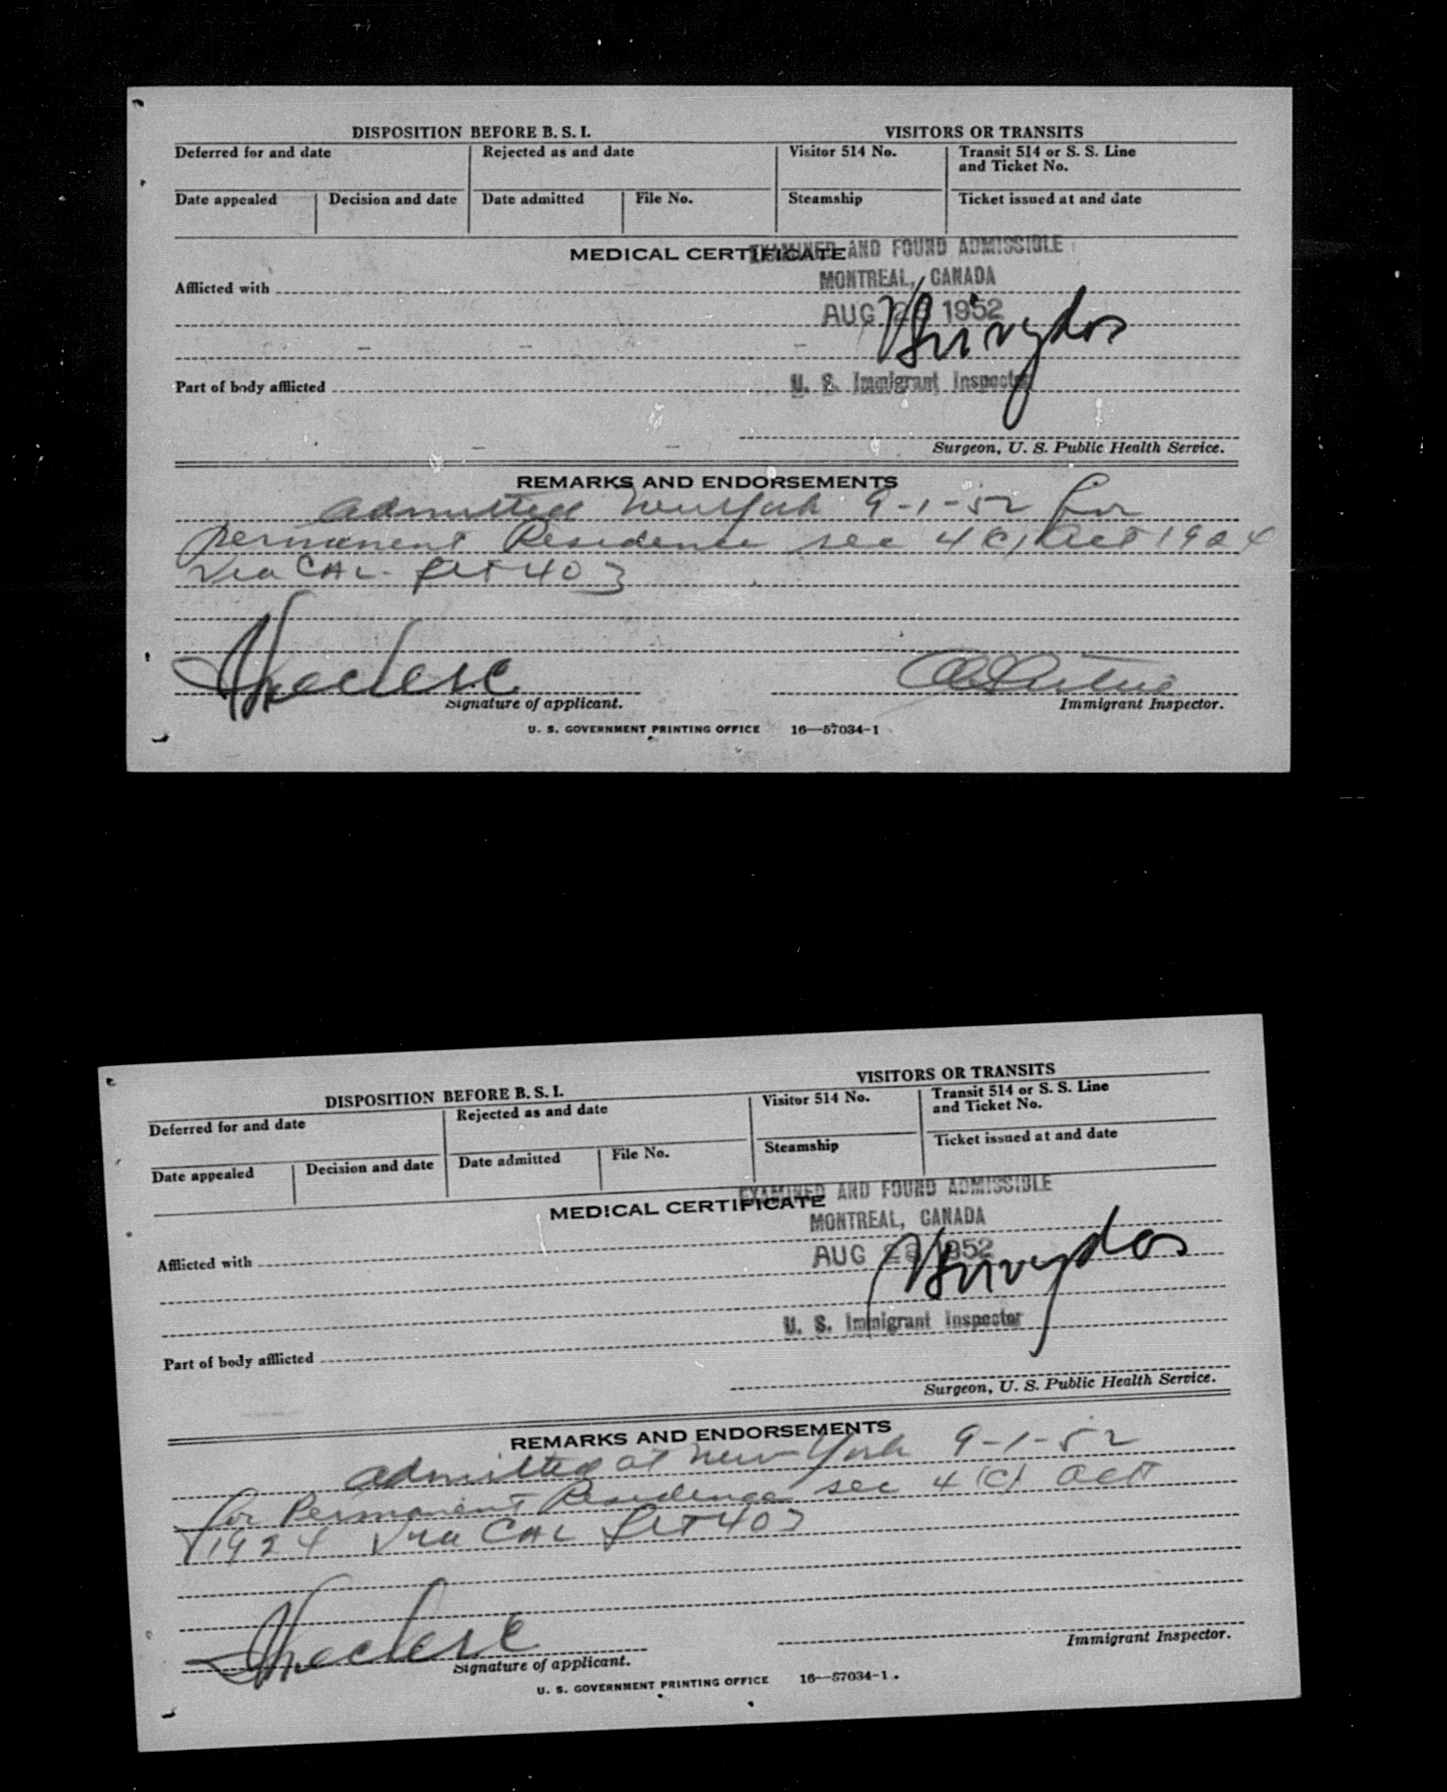 DISPOSITION BEFORE B. S. I.
VISITORS OR TRANSITS
Deferred for and date
Rejected as and date
Visitor 514 No.
Transit 514 or S. S. Line
and Ticket No.
Date appealed
Decision and date
Date admitted
File No.
Steamship
Ticket issued at and date
MEDICAL CERTIFICATE
EXAMINED AND FOUND ADMISSIBLE
MONTREAL, CANADA
Afflicted with
AUG 1952
Part of body afflicted
U. S. Immigrant Inspector
Surgeon, U. S. Public Health Service.
REMARKS AND ENDORSEMENTS
admitted New York 9-1-52 for
permanent Residence sec 4(c) Act 1924
Via CAL flt 403
Signature of applicant.
Immigrant Inspector.
U. S. GOVERNMENT PRINTING OFFICE 16—57034-1
DISPOSITION BEFORE B. S. I.
VISITORS OR TRANSITS
Deferred for and date
Rejected as and date
Visitor 514 No.
Transit 514 or S. S. Line
and Ticket No.
Date appealed
Decision and date
Date admitted
File No.
Steamship
Ticket issued at and date
MEDICAL CERTIFICATE
EXAMINED AND FOUND ADMISSIBLE
MONTREAL, CANADA
Afflicted with
AUG 1952
U. S. Immigrant Inspector
Part of body afflicted
Surgeon, U. S. Public Health Service.
REMARKS AND ENDORSEMENTS
admitted at New York 9-1-52
for Permanent Residence sec 4(c) Act
1924 Via CAL flt 403
Signature of applicant.
Immigrant Inspector.
U. S. GOVERNMENT PRINTING OFFICE 16—57034-1